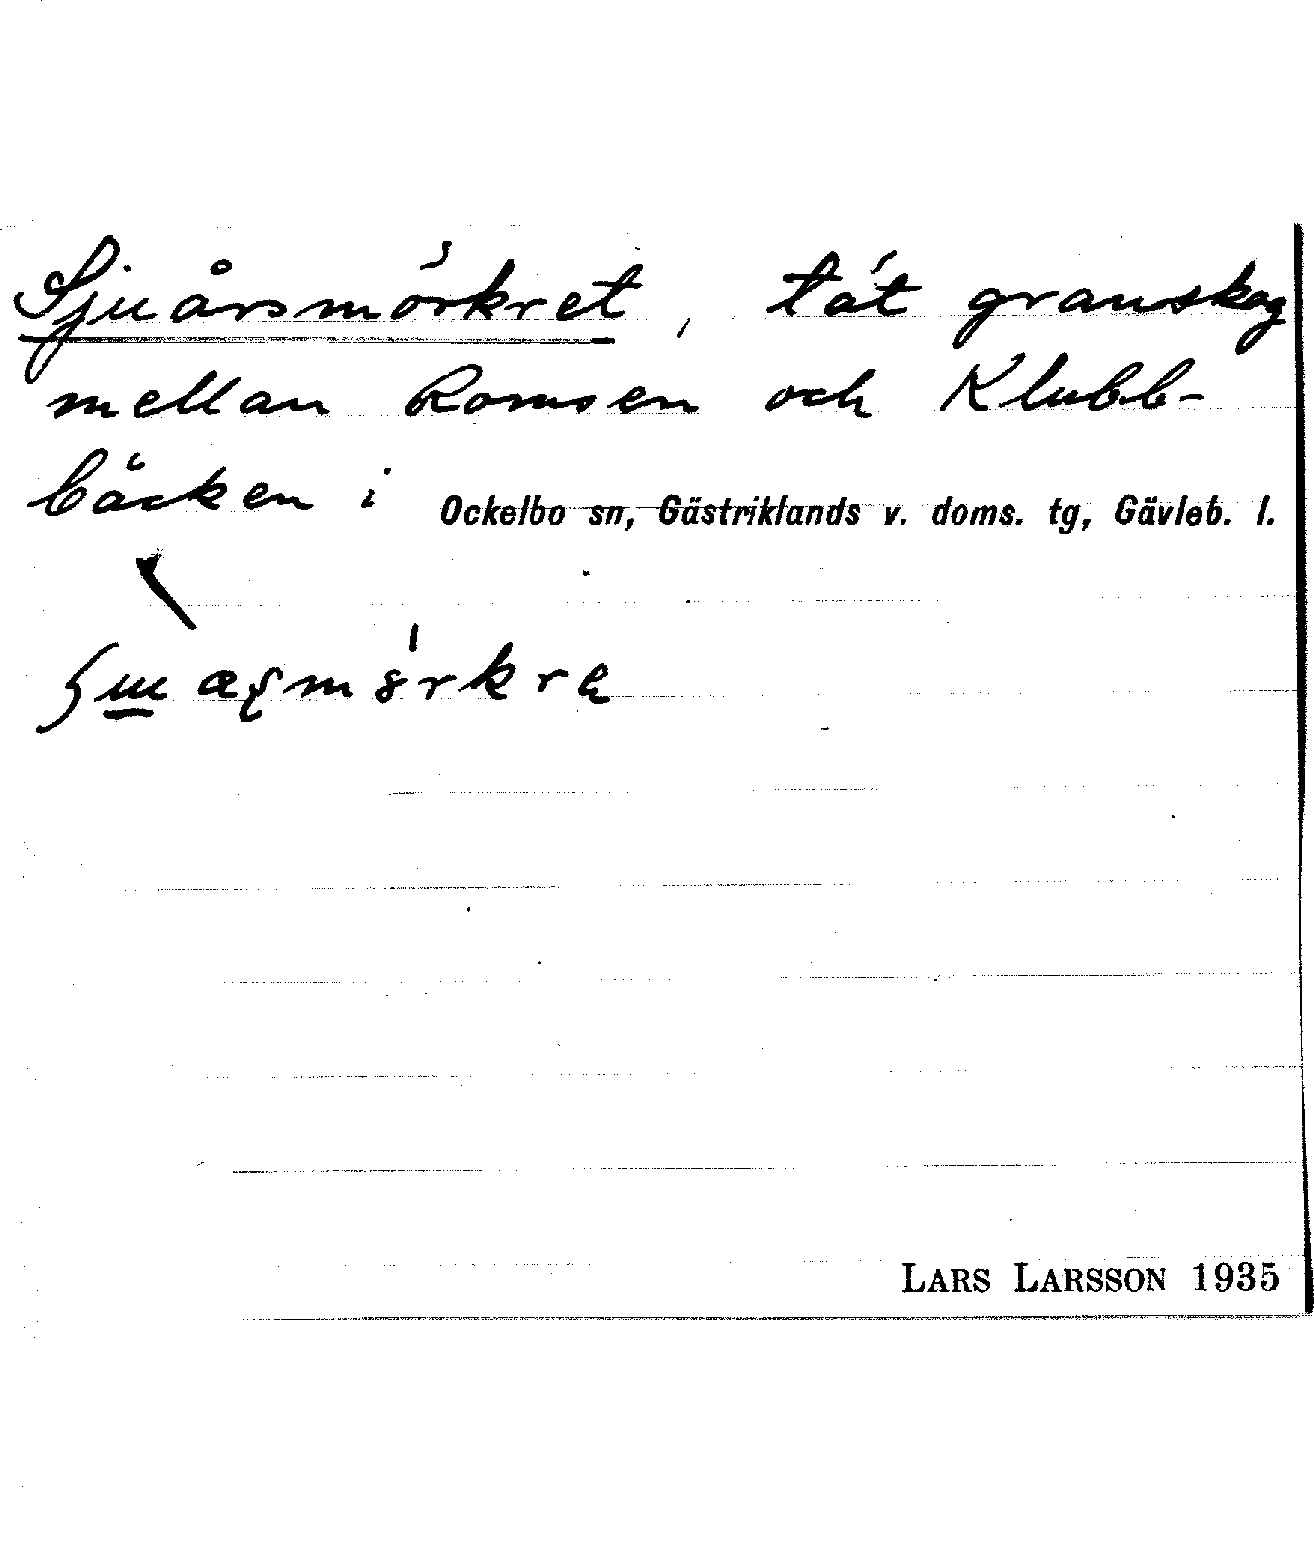 Sjuårsmörkret, tät granskog
mellan Romsen och Klubb-
bäcken i Ockelbo sn, Gästriklands v. doms. tg, Gävleb. l.
LARS LARSSON 1935